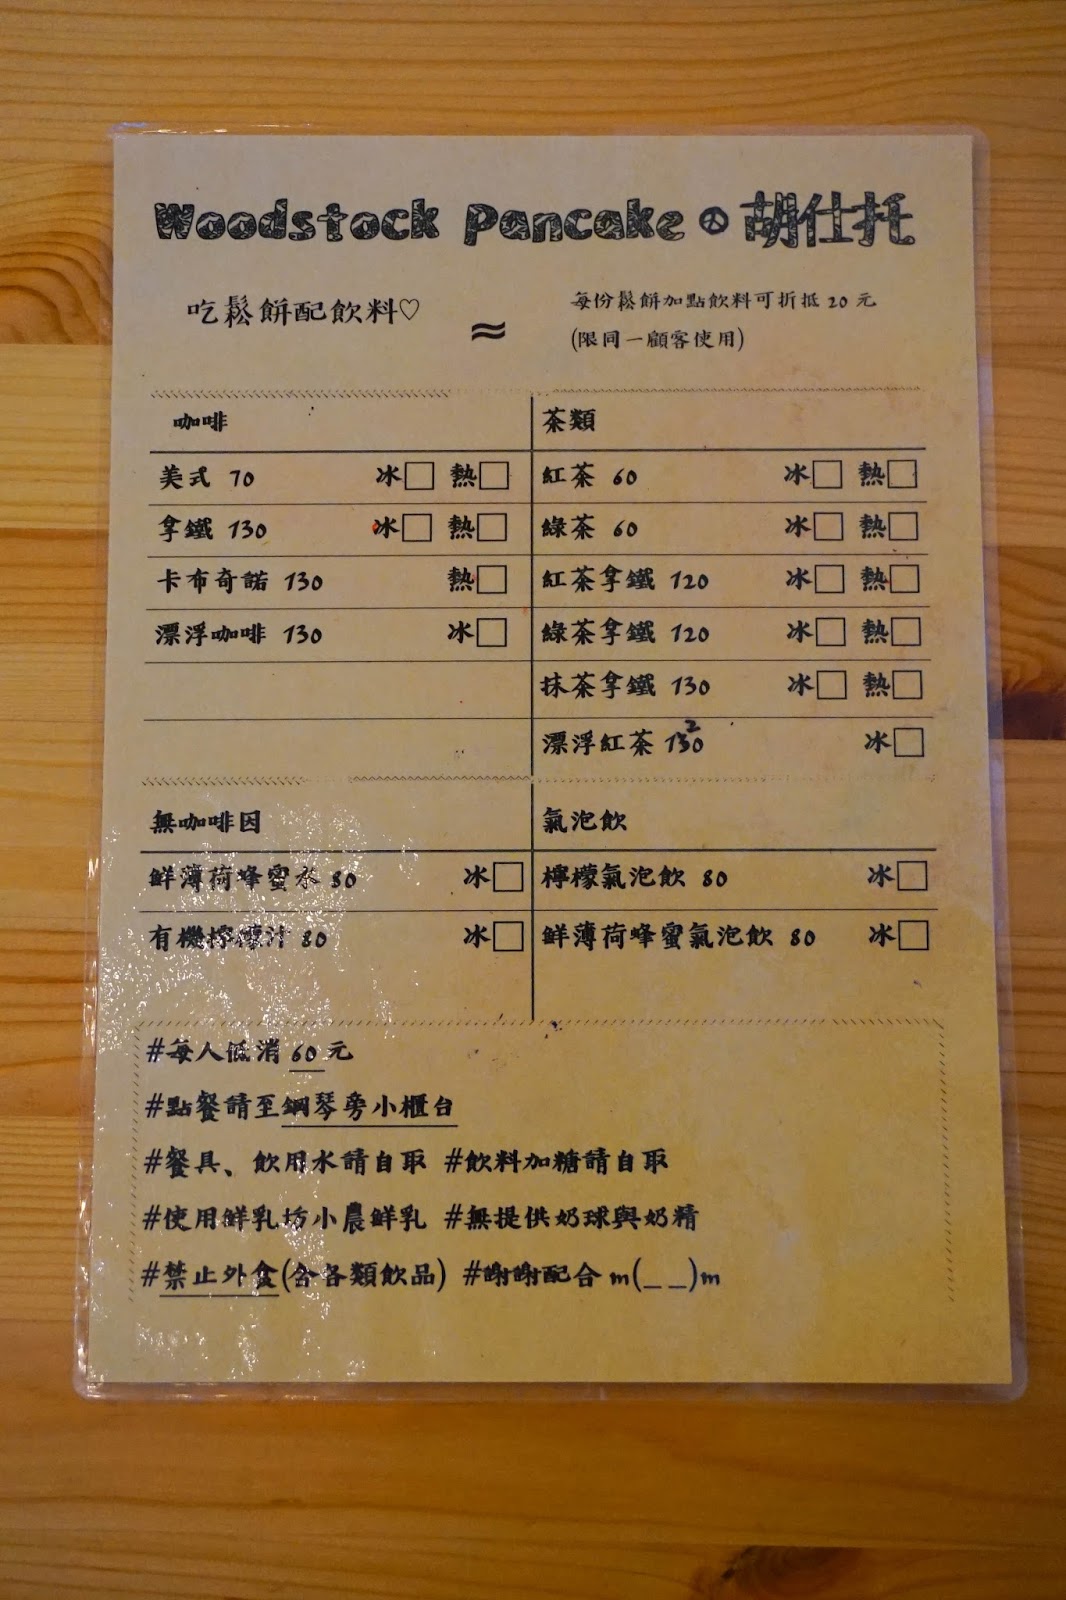 Woodstock Pancake 胡仕托
吃鬆餅配飲料♡
≈
每份鬆餅加點飲料可折抵 20 元
(限同一顧客使用)
咖啡
美式 70 冰□ 熱□
拿鐵 130 冰□ 熱□
卡布奇諾 130 熱□
漂浮咖啡 130 冰□
茶類
紅茶 60 冰□ 熱□
綠茶 60 冰□ 熱□
紅茶拿鐵 120 冰□ 熱□
綠茶拿鐵 120 冰□ 熱□
抹茶拿鐵 130 冰□ 熱□
漂浮紅茶 120 冰□
無咖啡因
鮮薄荷蜂蜜水 80 冰□
有機檸檬汁 80 冰□
氣泡飲
檸檬氣泡飲 80 冰□
鮮薄荷蜂蜜氣泡飲 80 冰□
#每人低消 60 元
#點餐請至鋼琴旁小櫃台
#餐具、飲用水請自取 #飲料加糖請自取
#使用鮮乳坊小農鮮乳 #無提供奶球與奶精
#禁止外食(含各類飲品) #謝謝配合 m(_ _)m